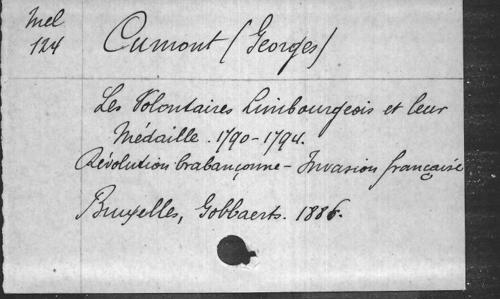 Mel
124
Cumont (Georges)
Les Volontaires Limbourgeois et leur
Médaille. 1790-1794.
Révolution brabançonne - Invasion française
Bruxelles, Gobbaerts. 1886.